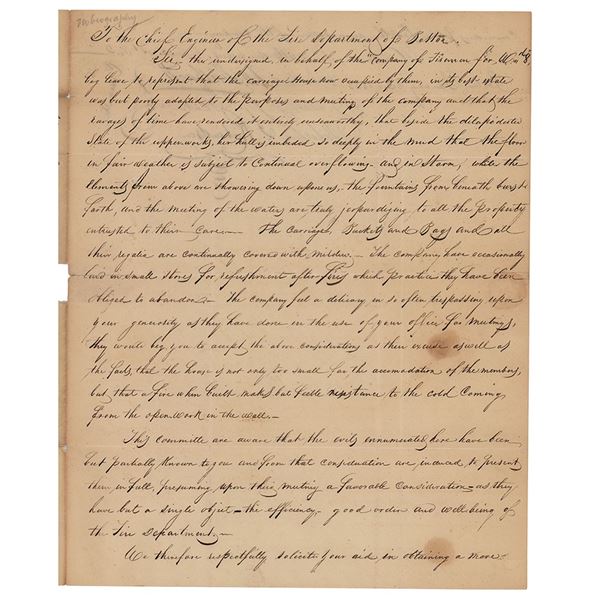 To the Chief Engineer of the Fire Department of Boston.
Sir, the undersigned, in behalf of the "Company of Firemen for
beg leave to represent that the carriage House now occupied by them, in its best estate
was but poorly adapted to the purposes and meeting of the company and that the
ravages of time have rendered it entirely unseaworthy, that beside the delapedated
State of the upperworks, her hull is imbeded so deeply in the mud that the floor
in fair weather is subject to continual overflowing and in Storm, while the
Elements from above are showering down upon us, the fountains from beneath burst
forth, and the meeting of the waters are truly jeopardizing to all the Property
intrusted to their care — The Carriage, Buckets and Bags and all
their regalia are continually covered with mildew. — The company have occasionally
laid in small stores for refreshment after fires which practice they have been
obliged to abandon — The company feel a delicacy in so often trespassing upon
your generosity as they have done in the use of your office for meetings,
they would beg you to accept the above considerations as their excuse as well as
the facts, that the house is not only too small for the accomodation of the members,
but that a fire when built makes but feeble resistance to the cold coming
from the open work in the wall. —
This committe are aware that the evils ennumerated here have been
but partially known to you and from that consideration are, induced, to present
them in full, presuming upon their meeting a favorable consideration — as they
have but a single object — the efficiency, good order and well being of
the Fire Department. —
We therefore respectfully solicit your aid in obtaining a more